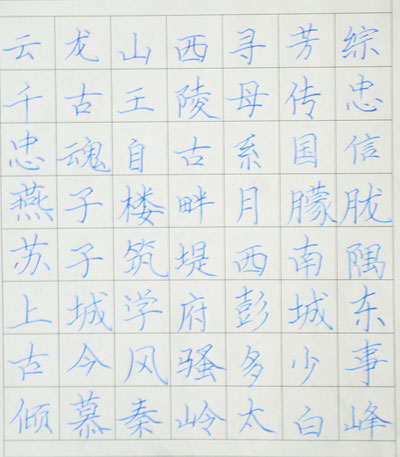 云龙山西寻芳综
千古王陵母传忠
忠魂自古系国信
燕子楼畔月朦胧
苏子筑堤西南隅
上城学府彭城东
古今风骚多少事
倾慕秦岭太白峰